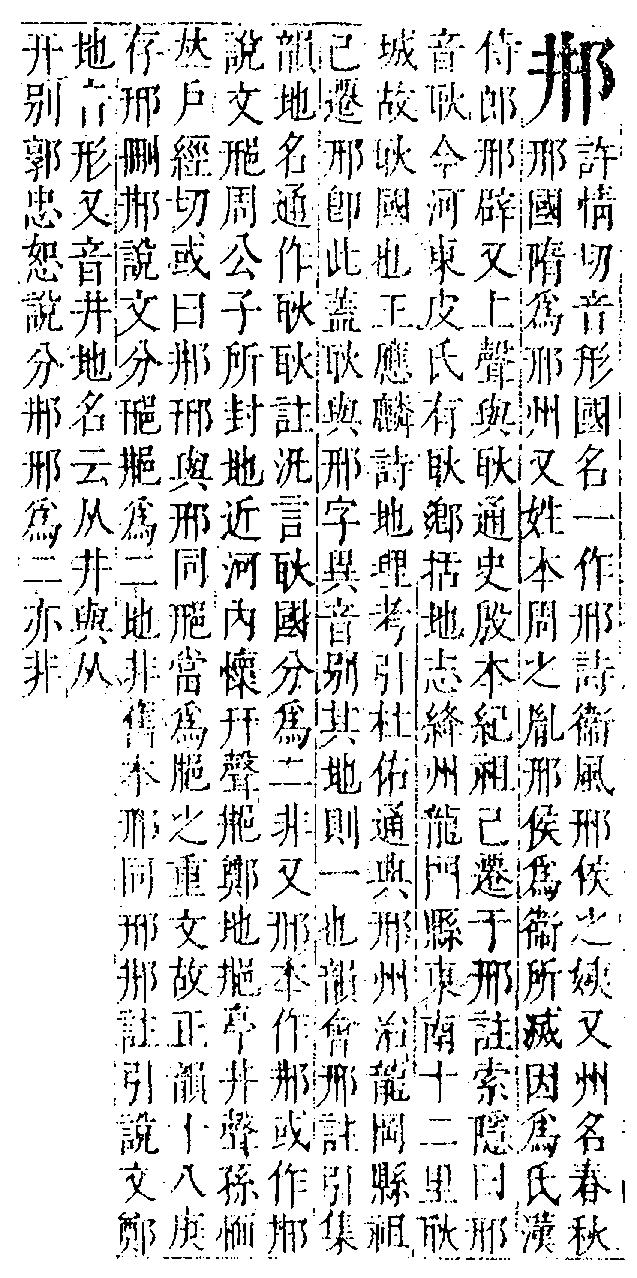 邢
許情切音形國名一作邢詩衞風邢侯之姨又州名春秋
邢國隋爲邢州又姓本周之胤邢侯爲衞所滅因爲氏漢
侍郎邢辟又上聲與耿通史殷本紀祖己遷于邢註索隱曰邢
音耿今河東皮氏有耿鄉括地志絳州龍門縣東南十二里耿
城故耿國也王應麟詩地理考引杜佑通典邢州治龍岡縣祖
己遷邢卽此蓋耿與邢字異音別其地則一也韻會邢註引集
韻地名通作耿耿註汎言耿國分爲二非又邢本作邢或作邢
說文周公子所封地近河內懷幵聲鄭地亭井聲孫愐
𠀤戶經切或曰邢邢與邢同當爲之重文故正韻十八庚
存邢刪邢說文分爲二地非舊本邢同邢邢註引說文鄭
地音形又音井地名云从井與从
幵別郭忠恕說分邢邢爲二亦非